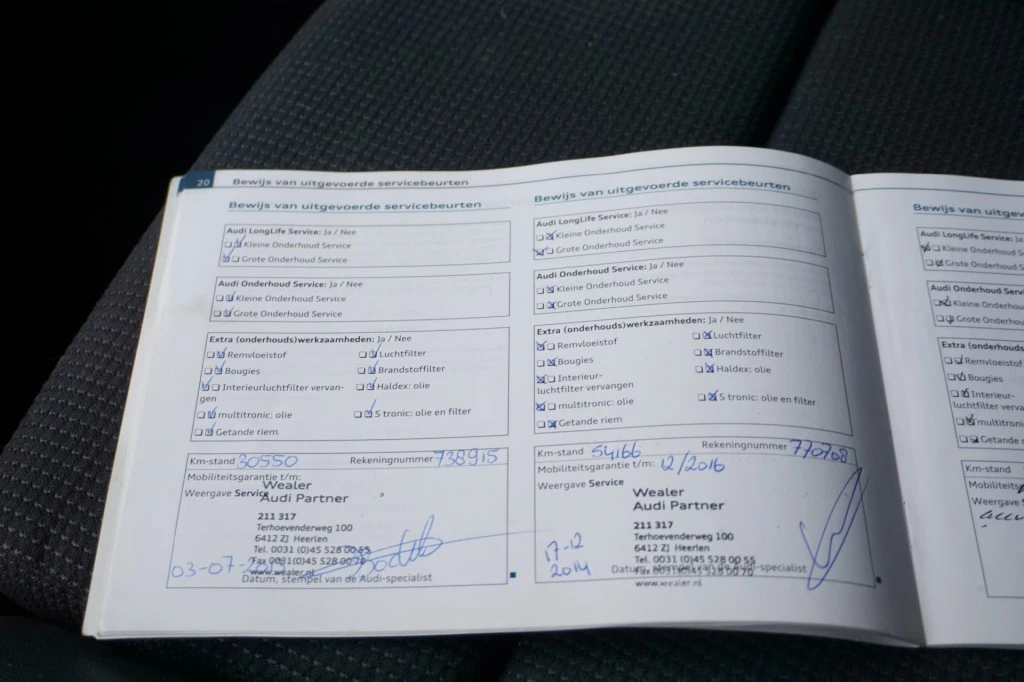 20 Bewijs van uitgevoerde servicebeurten
Bewijs van uitgevoerde servicebeurten
Audi LongLife Service: Ja / Nee
Kleine Onderhoud Service
Grote Onderhoud Service
Audi Onderhoud Service: Ja / Nee
Kleine Onderhoud Service
Grote Onderhoud Service
Extra (onderhouds)werkzaamheden: Ja / Nee
Remvloeistof Luchtfilter
Bougies Brandstoffilter
Interieurluchtfilter vervan- Haldex: olie
gen
multitronic: olie S tronic: olie en filter
Getande riem
Km-stand 30550 Rekeningnummer 738915
Mobiliteitsgarantie t/m:
Weergave Service
Wealer
Audi Partner
211 317
Terhoevenderweg 100
6412 ZJ Heerlen
Tel. 0031 (0)45 528 00 55
Fax 0031(0)45 528 00 70
www.wealer.nl
03-07-
Datum, stempel van de Audi-specialist
Bewijs van uitgevoerde servicebeurten
Audi LongLife Service: Ja / Nee
Kleine Onderhoud Service
Grote Onderhoud Service
Audi Onderhoud Service: Ja / Nee
Kleine Onderhoud Service
Grote Onderhoud Service
Extra (onderhouds)werkzaamheden: Ja / Nee
Remvloeistof Luchtfilter
Bougies Brandstoffilter
Interieur- Haldex: olie
luchtfilter vervangen
multitronic: olie S tronic: olie en filter
Getande riem
Km-stand 54166 Rekeningnummer 770708
Mobiliteitsgarantie t/m: 12/2016
Weergave Service
Wealer
Audi Partner
211 317
Terhoevenderweg 100
6412 ZJ Heerlen
Tel. 0031 (0)45 528 00 55
Fax 0031(0)45 528 00 70
www.wealer.nl
17-12
2014
Datum, stempel van de Audi-specialist
Bewijs van uitgev
Audi LongLife Service: Ja
Kleine Onderhoud S
Grote Onderhoud
Audi Onderhoud Servi
Kleine Onderhoud
Grote Onderhoud
Extra (onderhouds
Remvloeistof
Bougies
Interieur-
luchtfilter verva
multitroni
Getande
Km-stand
Mobiliteits
Weergave S